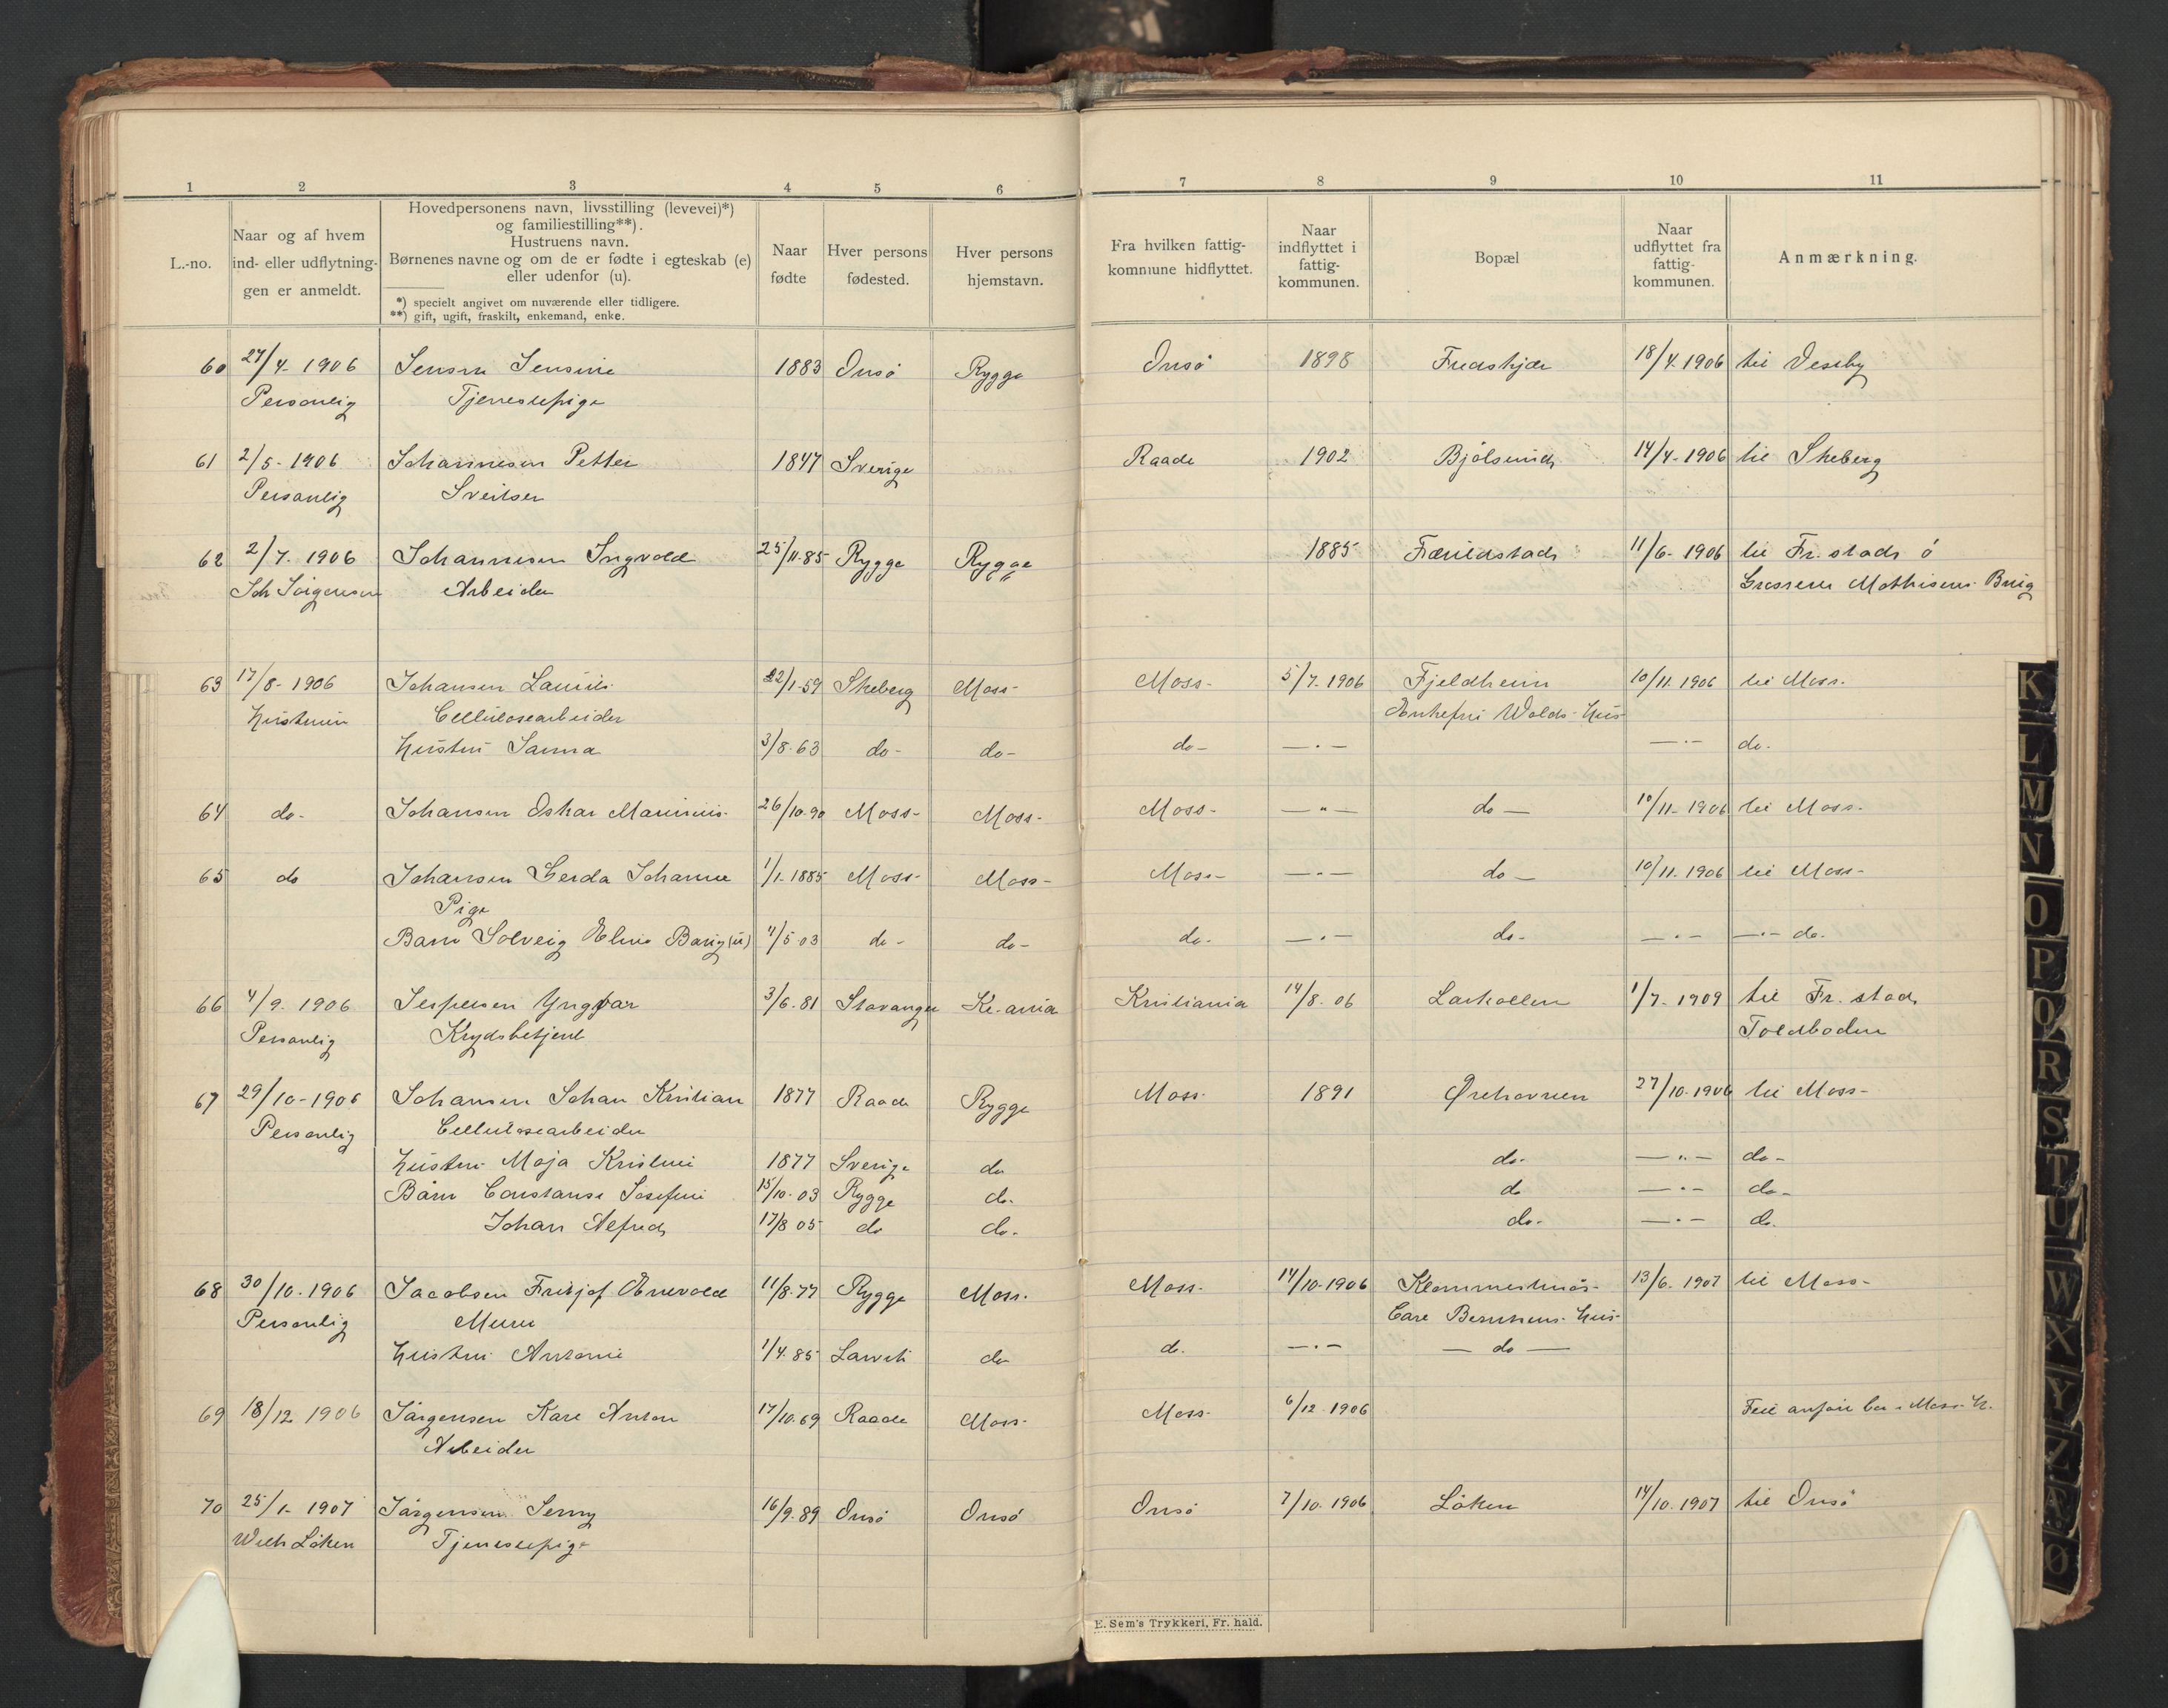 1 2 3 4 5 6 7 8 9 10 11
L.-no.
Naar og af hvem
ind- eller udflytnin-
gen er anmeldt.
Hovedpersonens navn, livsstilling (levevei)*)
og familiestilling**).
Hustruens navn.
Børnenes navne og om de er fødte i egteskab (e)
eller udenfor (u).
*) specielt angivet om nuværende eller tidligere.
**) gift, ugift, fraskilt, enkemand, enke.
Naar
fødte
Hver persons
fødested.
Hver persons
hjemstavn.
Fra hvilken fattig-
kommune hidflyttet.
Naar
indflyttet i
fattig-
kommunen.
Bopæl
Naar
udflyttet fra
fattig-
kommunen.
Anmærkning.
60 27/4- 1906 Jensen Jensine 1883 Onsö Rygge Onsö 1898 18/4. 1906 til Vestby
Personlig Tjenestepige
61 2/5- 1906 Johannesen Petter 1847 Sverige Raade 1902 Bjölsund 14/4- 1906 til Skeberg
Personlig Sveitser
62 2/7. 1906 Johannesen Ingvold 25/11-85 Rygge Rygge 1885 11/6- 1906 til Fr. stad ó
Joh Jörgensen Arbeider Grosserer Mathisens Brug
63 17/8- 1906 Johansen Lauritz 22/1-59 Skeberg Moss- Moss- 5/7. 1906 Fjeldheim 10/11. 1906 til Moss.
Hustruen Cellulosearbeider Enkefru Wolds Hus
Hustru Sanna 3/8. 63 do- do- do- —·— —·— do.
64 do- Johansen Oskar Marinius. 26/10-90 Moss- Moss- Moss- —"— do — 10/11- 1906 til Moss-
65 do Johansen Gerda Johanne 1/1-1885 Moss- Moss- Moss- —·— do — 10/11. 1906 til Moss-
Pige
Barn Solveig Elvine Barig (u) 4/5 03 do- do- do- —·— do- —·— —·— do.
66 4/9. 1906 Jespersen Yngvar 3/6. 81 Stavanger Kr.ania Kristiania 14/8. 06 Larkollen 1/7- 1909 til Fr. stad
Personlig Krydsbetjent Toldboden
67 29/10-1906 Johansen Johan Kristian 1877 Raade Rygge Moss. 1891 Ørehavnen 27/10. 1906 til Moss-
Personlig Cellulosearbeider
Hustru Maja Kristine 1877 Sverige do do- —"— do-
Barn Constanse Josefine 15/10-03 Rygge do. do —·— do-
Johan Alfred 17/8 05 do do. do- —·— do.
68 30/10. 1906 Jacobsen Fritjof Enevold 11/8-77 Rygge Moss. Moss- 14/10-1906 13/6. 1907 til Moss-
Personlig Murer Carl Berntsens Hus
Hustru Antonie 1/4. 85 Larvik do do. —·— — do —
69 18/12 1906 Jörgensen Karl Anton 17/10.69 Raade Moss- Moss- 6/12 1906 Feil anfört bor i Moss. H.
Arbeider
70 25/1- 1907 Jörgensen Jenny 16/9.89 Onsö Onsö Onsö 7/10. 1906 Löken 14/10. 1907 til Onsö
Wilh Löken Tjenestepige
E. Sem's Trykkeri, Fr. hald.
K
L
M
N
O
P
Q
R
S
T
U
W
X
Y
Z
Æ
Ø